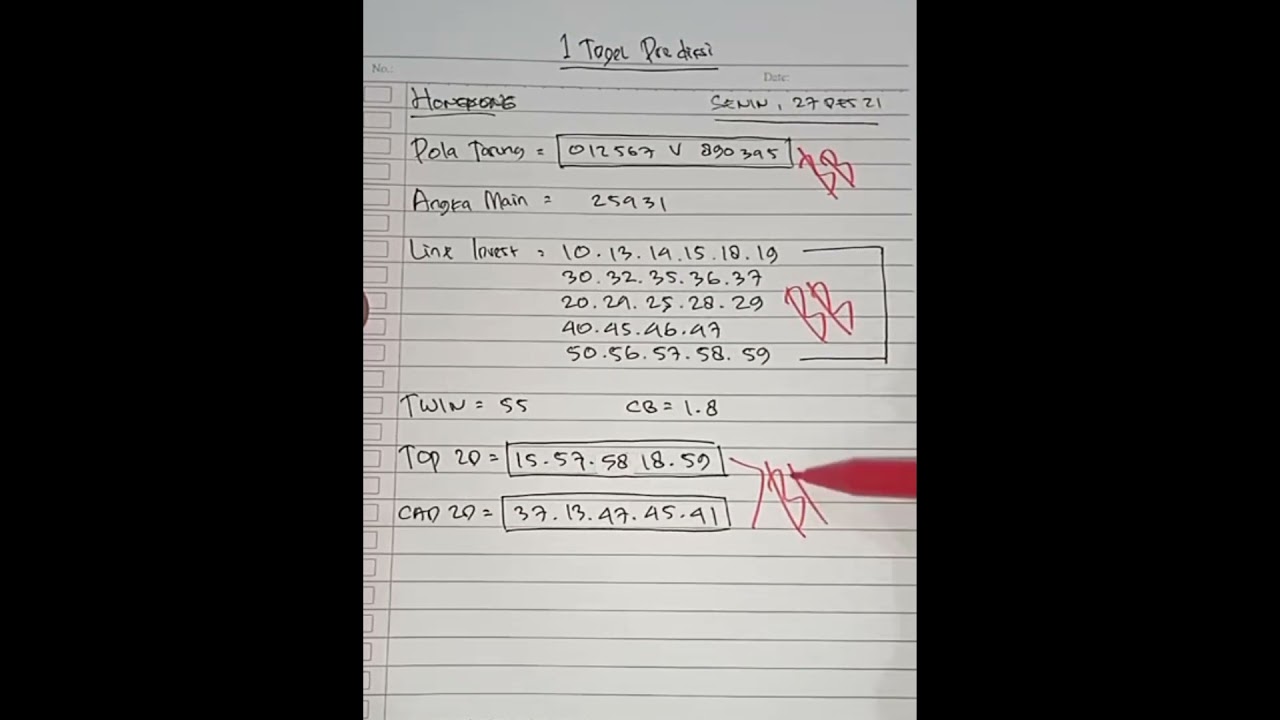 1 Togel Prediksi
No.:
Date:
HONGKONG
SENIN, 27 DES 21
Pola Tarung = 012567 V 890395 BB
Angka Main = 25931
Line Invest = 10.13.14.15.18.19
30.32.35.36.37
20.24.25.28.29 BB
40.45.46.47
50.56.57.58.59
TWIN = 55 CB = 1.8
TOP 2D = 15.57.58 18.59
CAD 2D = 37.13.47.45.41